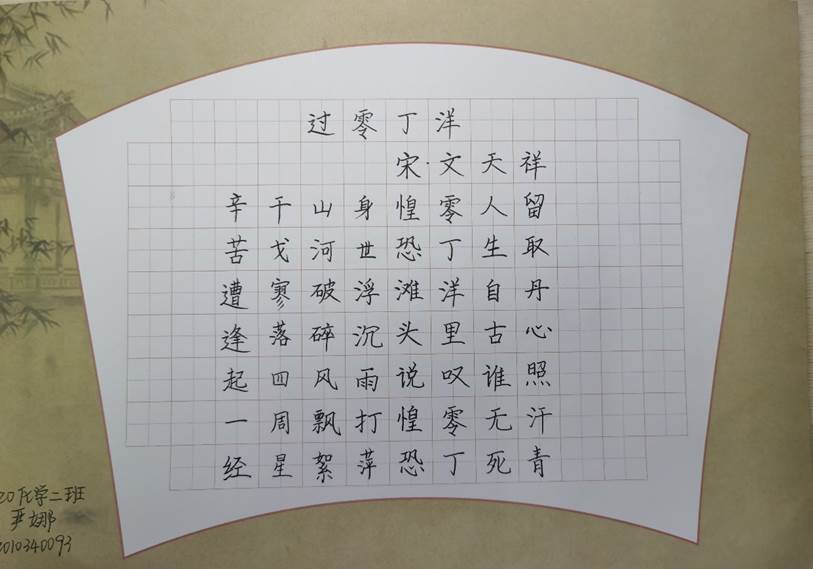 过零丁洋
宋·文天祥
辛苦遭逢起一经
干戈寥落四周星
山河破碎风飘絮
身世浮沉雨打萍
惶恐滩头说惶恐
零丁洋里叹零丁
人生自古谁无死
留取丹心照汗青
20化学二班
尹娜
2010340093